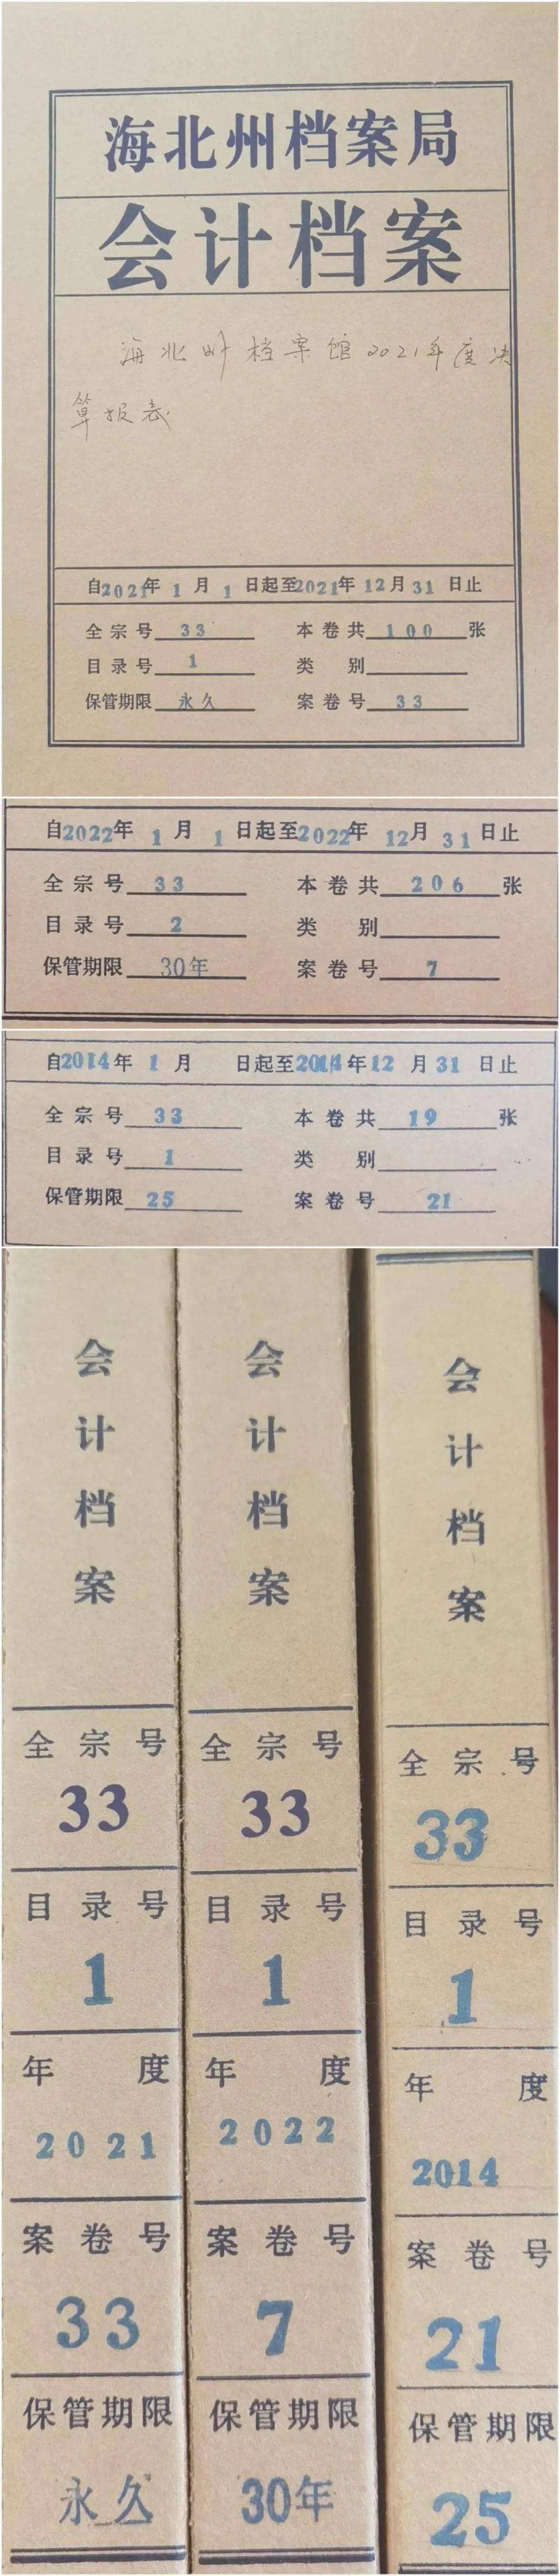 海北州档案局
会计档案
海北州档案馆2021年度决
算报表
自2021年 1 月 1 日起至2021年 12月 31 日止
全宗号 33 本卷共 100 张
目录号 1 类 别
保管期限 永久 案卷号 33
自2022年 1 月 1 日起至2022年 12月 31 日止
全宗号 33 本卷共 206 张
目录号 2 类 别
保管期限 30年 案卷号 7
自2014年 1 月 日起至2014年12 月 31 日止
全宗号 33 本卷共 19 张
目录号 1 类 别
保管期限 25 案卷号 21
会计档案
全宗号
33
目录号
1
年 度
2021
案卷号
33
保管期限
永久
会计档案
全宗号
33
目录号
1
年 度
2022
案卷号
7
保管期限
30年
会计档案
全宗号
33
目录号
1
年 度
2014
案卷号
21
保管期限
25